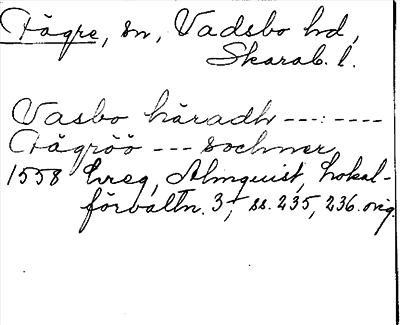 Fägre, sn, Vadsbo hd,
Skarab. l.
Vasbo häradh ---:----
Fägröö --- sochner
1558 Ereg, Almquist, Lokal-
förvaltn. 3, ss. 235, 236. orig.